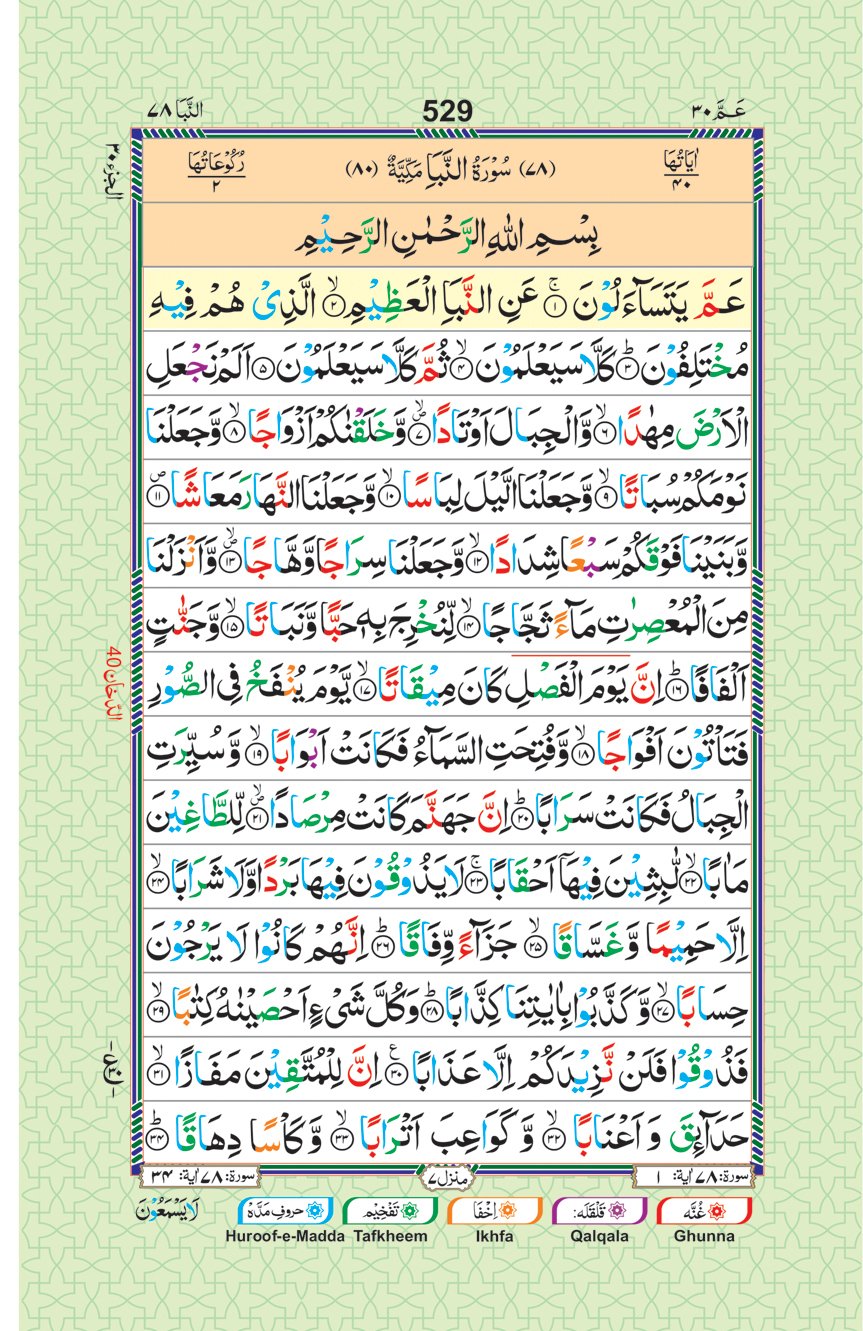 عَمَّ ٣٠ 529 النَّبَا ٧٨
الجزء ٣٠
اٰيَاتُهَا ٤٠ (٧٨) سُوْرَةُ النَّبَاِ مَكِّيَّةٌ (٨٠) رُكُوْعَاتُهَا ٢
بِسْمِ اللّٰهِ الرَّحْمٰنِ الرَّحِيْمِ
عَمَّ يَتَسَآءَلُوْنَ ۚ﴿١﴾ عَنِ النَّبَاِ الْعَظِيْمِ ۙ﴿٢﴾ الَّذِىْ هُمْ فِيْهِ
مُخْتَلِفُوْنَ ؕ﴿٣﴾ كَلَّا سَيَعْلَمُوْنَ ۙ﴿٤﴾ ثُمَّ كَلَّا سَيَعْلَمُوْنَ ﴿٥﴾ اَلَمْ نَجْعَلِ
الْاَرْضَ مِهٰدًا ۙ﴿٦﴾ وَّالْجِبَالَ اَوْتَادًا ۪ۙ﴿٧﴾ وَّخَلَقْنٰكُمْ اَزْوَاجًا ۙ﴿٨﴾ وَّجَعَلْنَا
نَوْمَكُمْ سُبَاتًا ۙ﴿٩﴾ وَّجَعَلْنَا الَّيْلَ لِبَاسًا ۙ﴿١٠﴾ وَّجَعَلْنَا النَّهَارَ مَعَاشًا ۪﴿١١﴾
وَّبَنَيْنَا فَوْقَكُمْ سَبْعًا شِدَادًا ۙ﴿١٢﴾ وَّجَعَلْنَا سِرَاجًا وَّهَّاجًا ۪ۙ﴿١٣﴾ وَّاَنْزَلْنَا
مِنَ الْمُعْصِرٰتِ مَآءً ثَجَّاجًا ۙ﴿١٤﴾ لِّنُخْرِجَ بِهٖ حَبًّا وَّنَبَاتًا ۙ﴿١٥﴾ وَّجَنّٰتٍ
الدّخان 40
اَلْفَافًا ؕ﴿١٦﴾ اِنَّ يَوْمَ الْفَصْلِ كَانَ مِيْقَاتًا ۙ﴿١٧﴾ يَّوْمَ يُنْفَخُ فِى الصُّوْرِ
فَتَاْتُوْنَ اَفْوَاجًا ۙ﴿١٨﴾ وَّفُتِحَتِ السَّمَآءُ فَكَانَتْ اَبْوَابًا ۙ﴿١٩﴾ وَّسُيِّرَتِ
الْجِبَالُ فَكَانَتْ سَرَابًا ؕ﴿٢٠﴾ اِنَّ جَهَنَّمَ كَانَتْ مِرْصَادًا ۪ۙ﴿٢١﴾ لِّلطَّاغِيْنَ
مَاٰبًا ۙ﴿٢٢﴾ لّٰبِثِيْنَ فِيْهَاۤ اَحْقَابًا ۚ﴿٢٣﴾ لَا يَذُوْقُوْنَ فِيْهَا بَرْدًا وَّلَا شَرَابًا ۙ﴿٢٤﴾
اِلَّا حَمِيْمًا وَّغَسَّاقًا ۙ﴿٢٥﴾ جَزَآءً وِّفَاقًا ؕ﴿٢٦﴾ اِنَّهُمْ كَانُوْا لَا يَرْجُوْنَ
حِسَابًا ۙ﴿٢٧﴾ وَّكَذَّبُوْا بِاٰيٰتِنَا كِذَّابًا ؕ﴿٢٨﴾ وَكُلَّ شَىْءٍ اَحْصَيْنٰهُ كِتٰبًا ۙ﴿٢٩﴾
فَذُوْقُوْا فَلَنْ نَّزِيْدَكُمْ اِلَّا عَذَابًا ٪﴿٣٠﴾ اِنَّ لِلْمُتَّقِيْنَ مَفَازًا ۙ﴿٣١﴾
حَدَآئِقَ وَ اَعْنَابًا ۙ﴿٣٢﴾ وَّكَوَاعِبَ اَتْرَابًا ۙ﴿٣٣﴾ وَّكَاْسًا دِهَاقًا ؕ﴿٣٤﴾
سورة: ٧٨ اٰية: ١ منزل ٧ سورة: ٧٨ اٰية: ٣٤
غُنَّه قَلْقَلَه: اِخْفَا تَفْخِيْم حروفِ مَدَّہ لَا يَسْمَعُوْنَ
Huroof-e-Madda Tafkheem Ikhfa Qalqala Ghunna